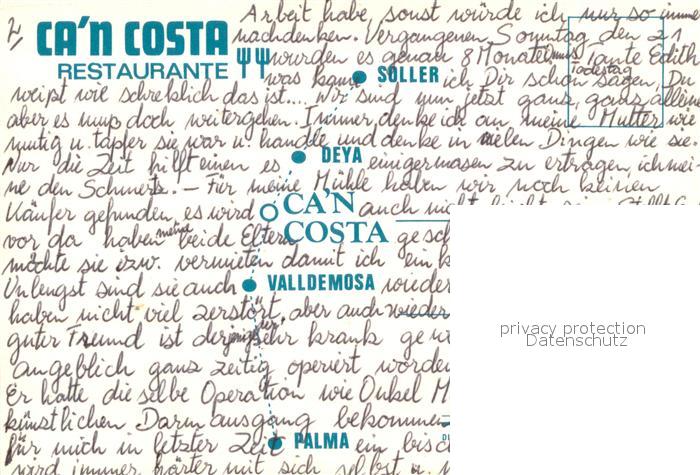 2,
Arbeit habe, sonst würde ich nur so immer
CA'N COSTA
RESTAURANTE
nachdenken. Vergangenen Sonntag den 21
wurden es genau 8 Monate Tante Edith
Todestag
was kann ich Dir schon sagen, Du
SOLLER
weißt wie schreklich das ist.... Wir sind nun jetzt ganz, ganz allein
aber es muß doch weitergehen. Immer denke ich an meine Mutter wie
mutig u. tapfer sie war u. handle und denke in vielen Dingen wie sie.
Nur die Zeit hilft einen es einigermasen zu ertragen, ich mei-
DEYA
ne den Schmerz. — Für meine Mühle haben wir noch keinen
Käufer gefunden, es wird auch nicht
CA'N
COSTA
vor da haben meine beide Eltern
möchte sie bzw. vermieten damit ich ein
Unlengst sind sie auch wieder
VALLDEMOSA
haben nicht viel zerstört, aber auch wieder
guter Freund ist sehr krank
angeblich ganz zeitig operiert worden
Er hatte die selbe Operation wie Onkel M
künstlichen Darmausgang bekommen
für mich in letzter Zeit ein
PALMA
wird immer härter mit sich selbst u.
privacy protection
Datenschutz